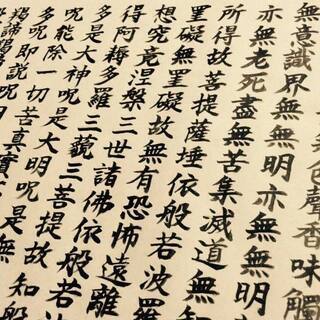 無色聲香味觸
無意識界無無明亦無無明
亦無老死盡無苦集滅道無
所得故菩提薩埵依般若波羅
罣礙無罣礙故無有恐怖遠離
想究竟涅槃三世諸佛依般若
得阿耨多羅三藐三菩提故知般
多是大神呪是大明呪是無
呪能除一切苦真實
多呪即說呪曰